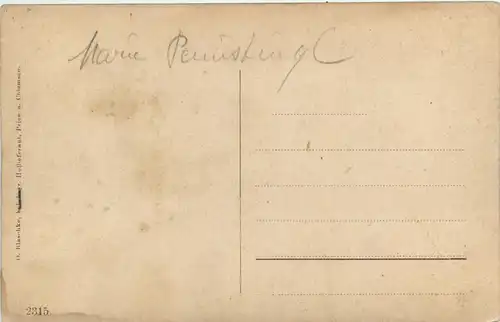 Marie Pennstingl
Hoflieferant, Prien a. Chiemsee.
2315.